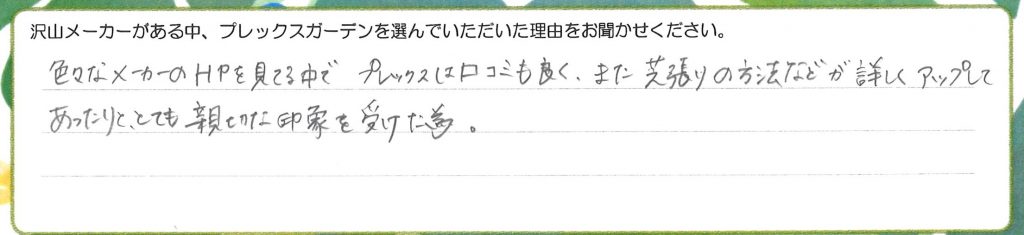 沢山メーカーがある中、プレックスガーデンを選んでいただいた理由をお聞かせください。
色々なメーカーのHPを見てる中で プレックスは口コミも良く、また 芝張りの方法などが 詳しく アップして
あったりと、とても 親切な 印象を 受けた為。